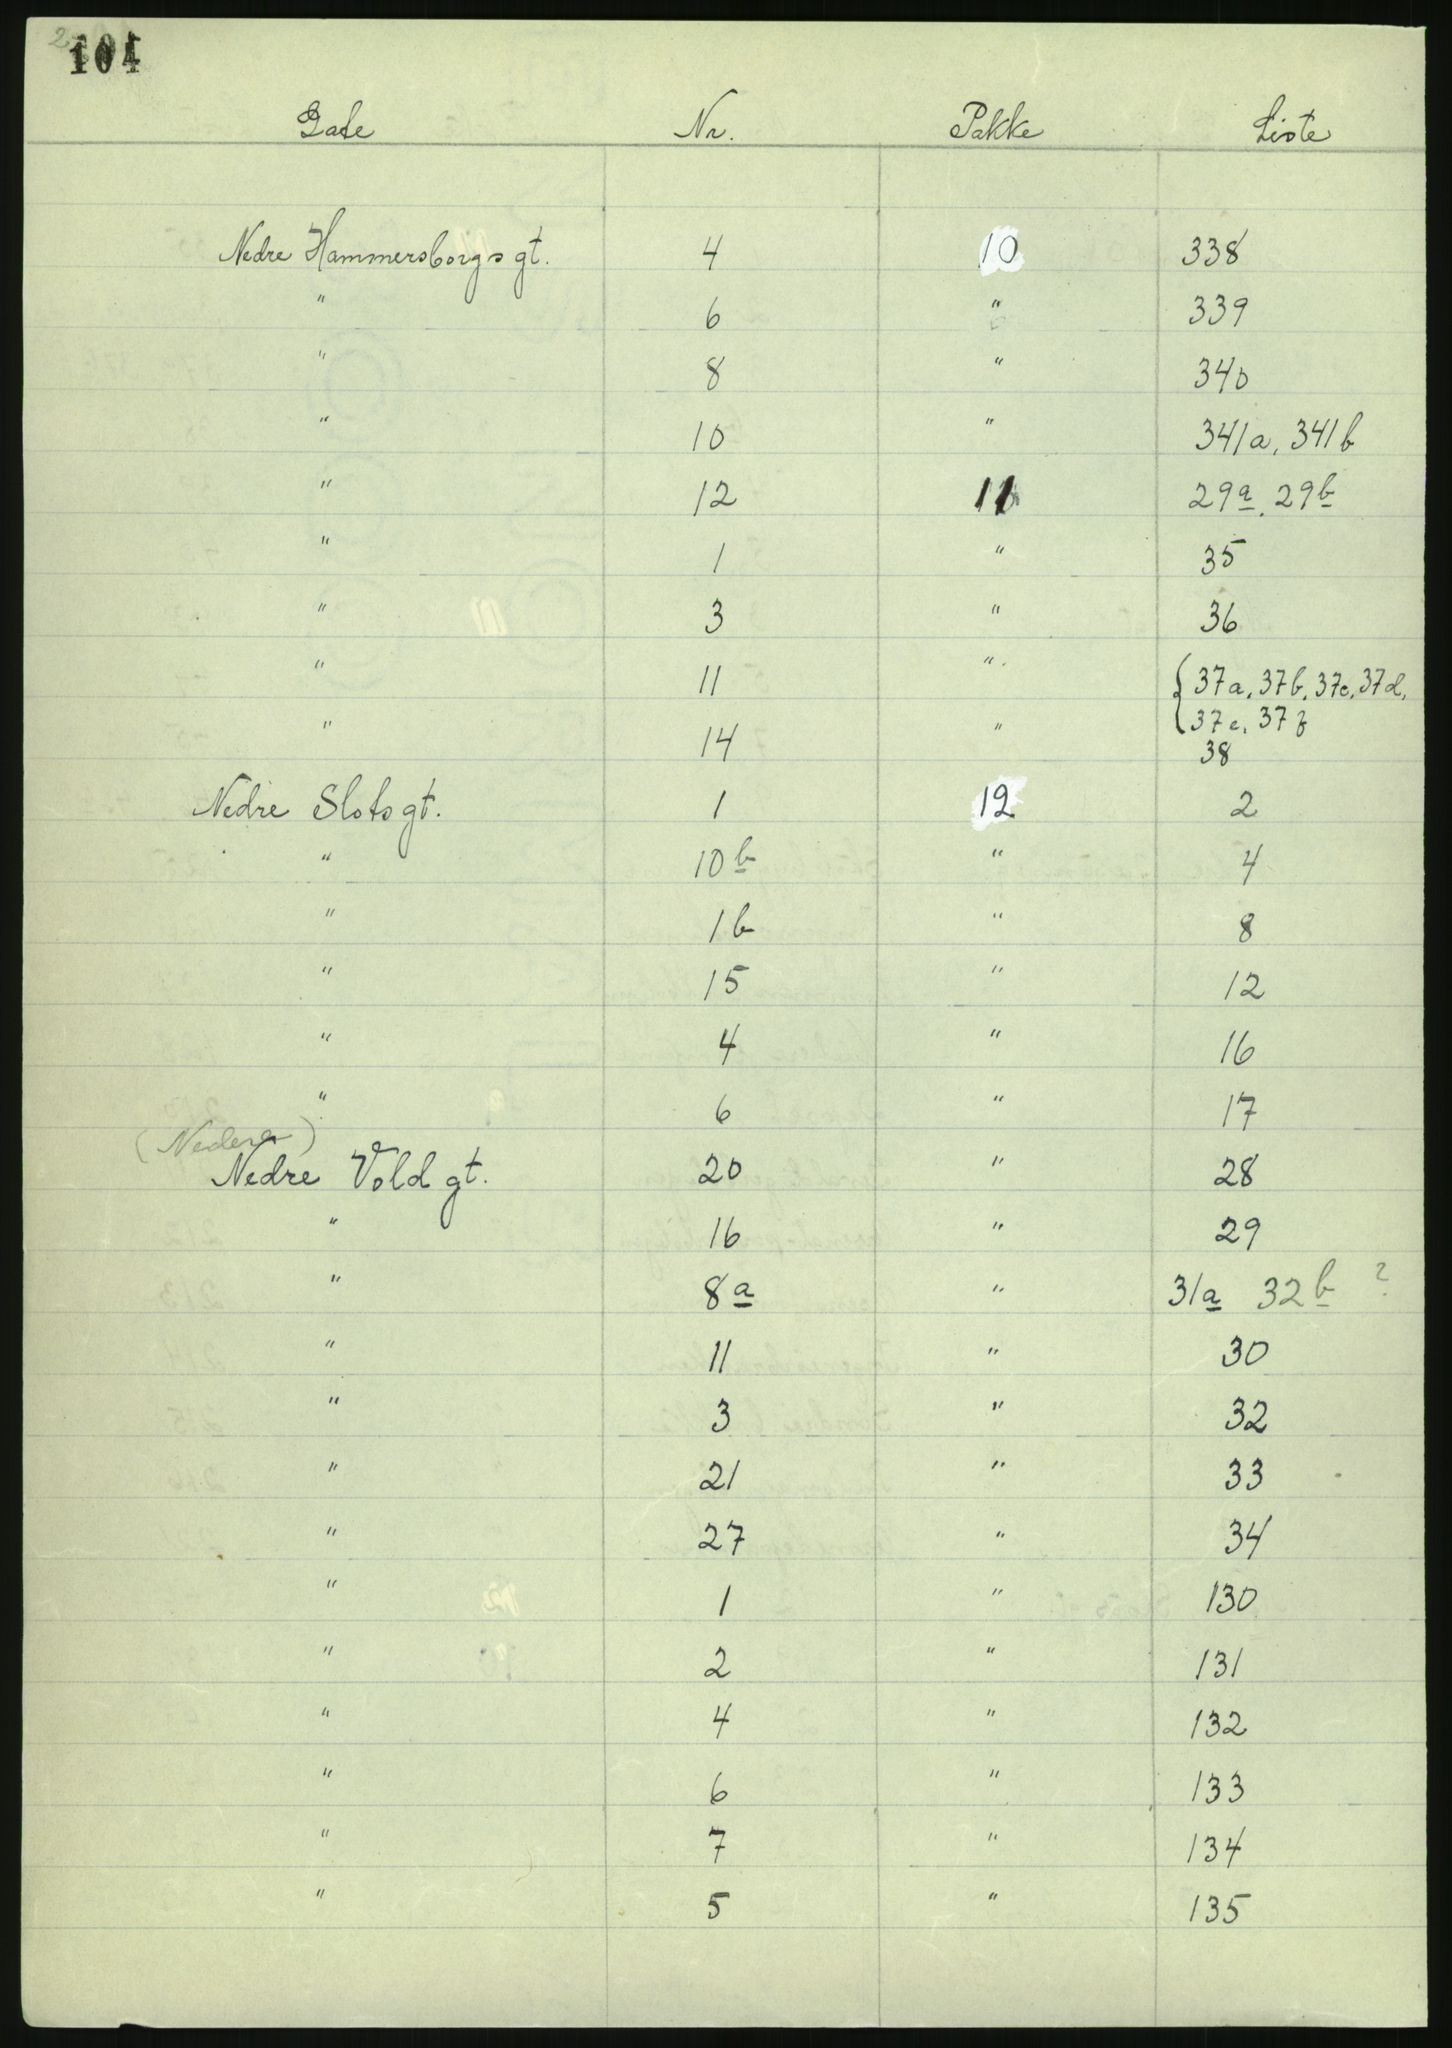 104
Gate Nr. Pakke Liste
Nedre Hammersborgs gt. 4 10 338
" 6 " 339
" 8 " 340
" 10 " 341a, 341b
" 12 11 29a. 29b
" 1 " 35
" 3 " 36
" 11 " { 37a, 37b, 37c, 37d,
37e, 37f
" 14 " 38
Nedre Slotsgt. 1 12 2
" 10b " 4
" 1b " 8
" 15 " 12
" 4 " 16
" 6 " 17
(Nedera)
Nedre Vold gt. 20 " 28
" 16 " 29
" 8a " 31a 32b ?
" 11 " 30
" 3 " 32
" 21 " 33
" 27 " 34
" 1 " 130
" 2 " 131
" 4 " 132
" 6 " 133
" 7 " 134
" 5 " 135